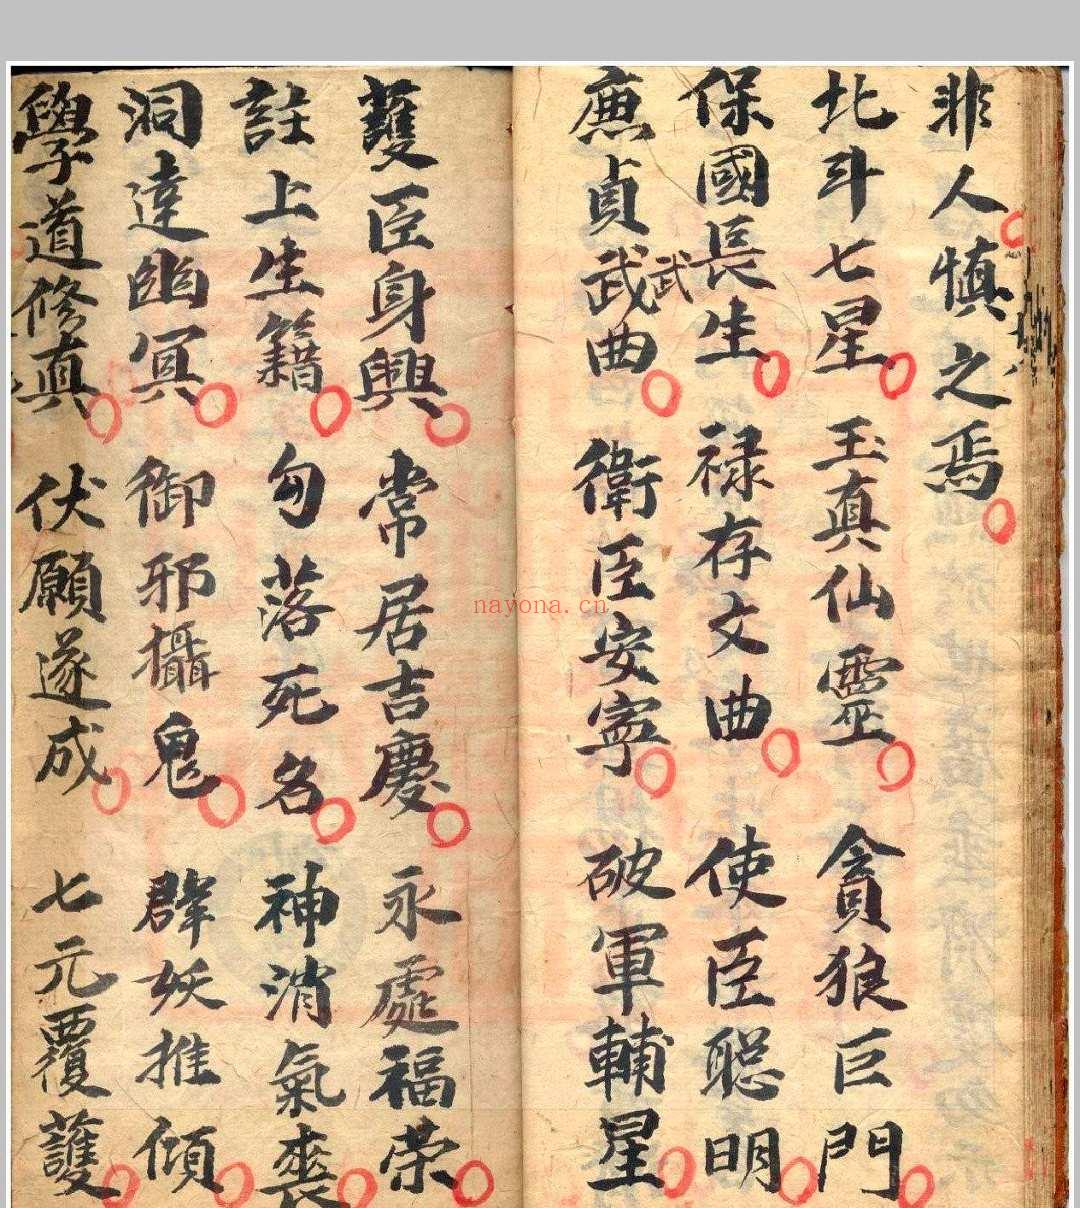 非人慎之焉
北斗七星玉真仙靈貪狼巨門
保國長生祿存文曲使臣聰明
廉貞武曲衛臣安寧破軍輔星
武
護臣身興常居吉慶永處福荣
註上生籍勾落死名神消氣喪
洞達幽冥御邪攝鬼群妖推傾
學道修真伏願遂成七元覆護
nayona.cn